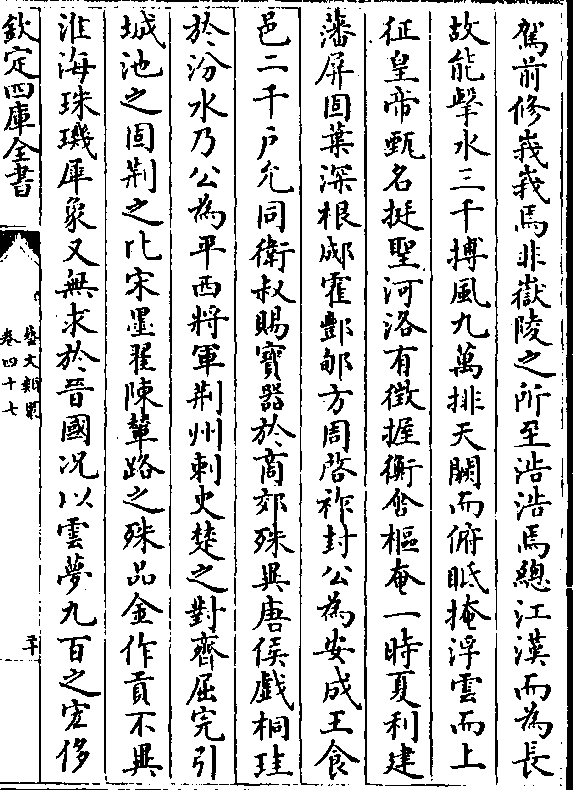 駕前修峩峩焉非嶽陵之所至浩浩焉總江漢而為長
故能擊水三千搏風九萬排天闕而俯眂掩浮雲而上
征皇帝甄名挺聖河洛有徵握衡含樞奄一時夏利建
藩屏固葉深根郕霍酆郇方周啓祚封公為安成王食
邑二千户允同衛叔賜寶器於商郊殊異唐侯戲桐珪
於汾水乃公為平西將軍荆州刺史楚之對齊屈完引
城池之固荆之比宋墨翟陳輦路之殊品金作貢不異
淮海珠璣犀象又無求於晉國况以雲夢九百之宏侈
欽定四庫全書
藝文類聚
卷四十七